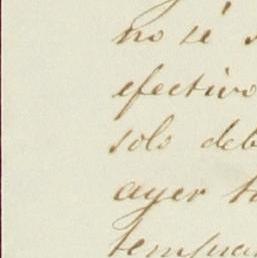 no sé
efectivo
solo deb
ayer t
tempran